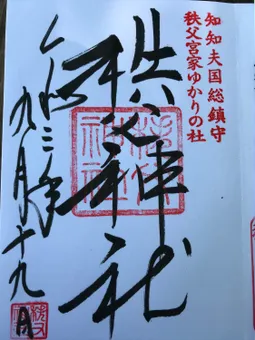 知知夫国総鎮守
秩父宮家ゆかりの社
秩父神社
令和三年
九月十九日
秩父神社